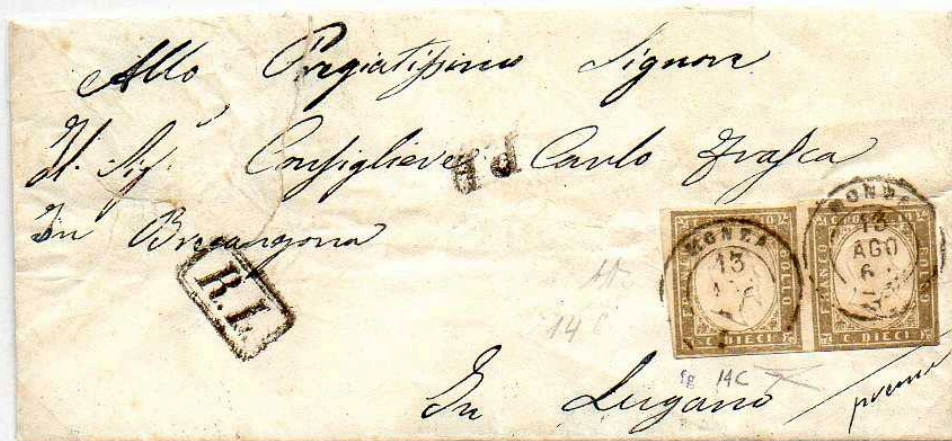 Allo Pregiatissimo Signore
Il Sig.r Consigliere Carlo Frasca
P.D.
In Breganzona
R.L.
MONZA
13
FRANCO BOLLO
C. DIECI
MONZA
13
AGO
61
C. POSTE 10
FRANCO BOLLO
C. DIECI
14 C
sg 14C
In Lugano